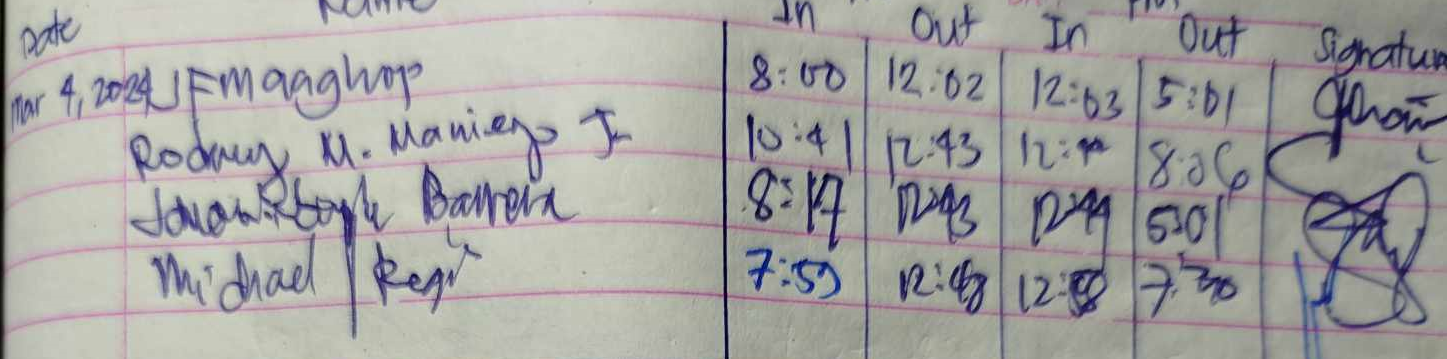 Date Name In Out In Out Signature
Mar 4, 2024 JFmagghop 8:00 12:02 12:03 5:01
Rodney M. Maniego Jr 10:41 12:43 12:44 8:06
Barrera 8:17 12:43 12:44 5:01
Michael Regi 7:59 12:48 7:30